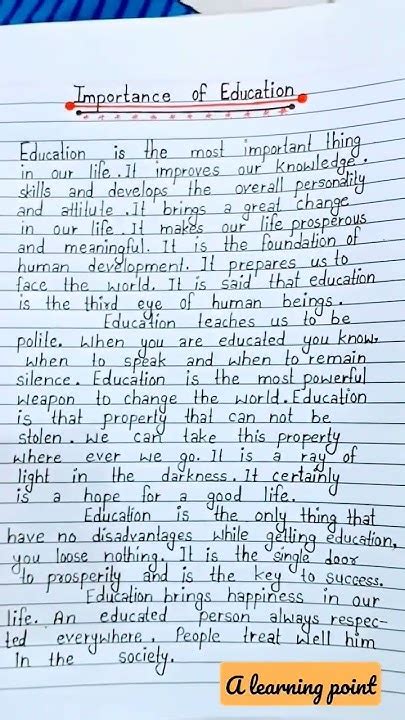 Importance of Education
Education is the most important thing
in our life. It improves our knowledge.
skills and develops the overall personality
and attitute. It brings a great change
in our life. It makes our life prosperous
and meaningful. It is the foundation of
human development. It prepares us to
face the world. It is said that education
is the third eye of human beings.
Education teaches us to be
polite. When you are educated you know.
when to speak and when to remain
silence. Education is the most powerful
weapon to change the world. Education
is that property that can not be
stolen. We can take this property
where ever we go. It is a ray of
light in the darkness. It certainly
is a hope for a good life.
Education is the only thing that
have no disadvantages while getting education,
you loose nothing. It is the single door
to prosperity and is the key to success.
Education brings happiness in our
life. An educated person always respec-
ted everywhere. People treat well him
In the society.
A learning point